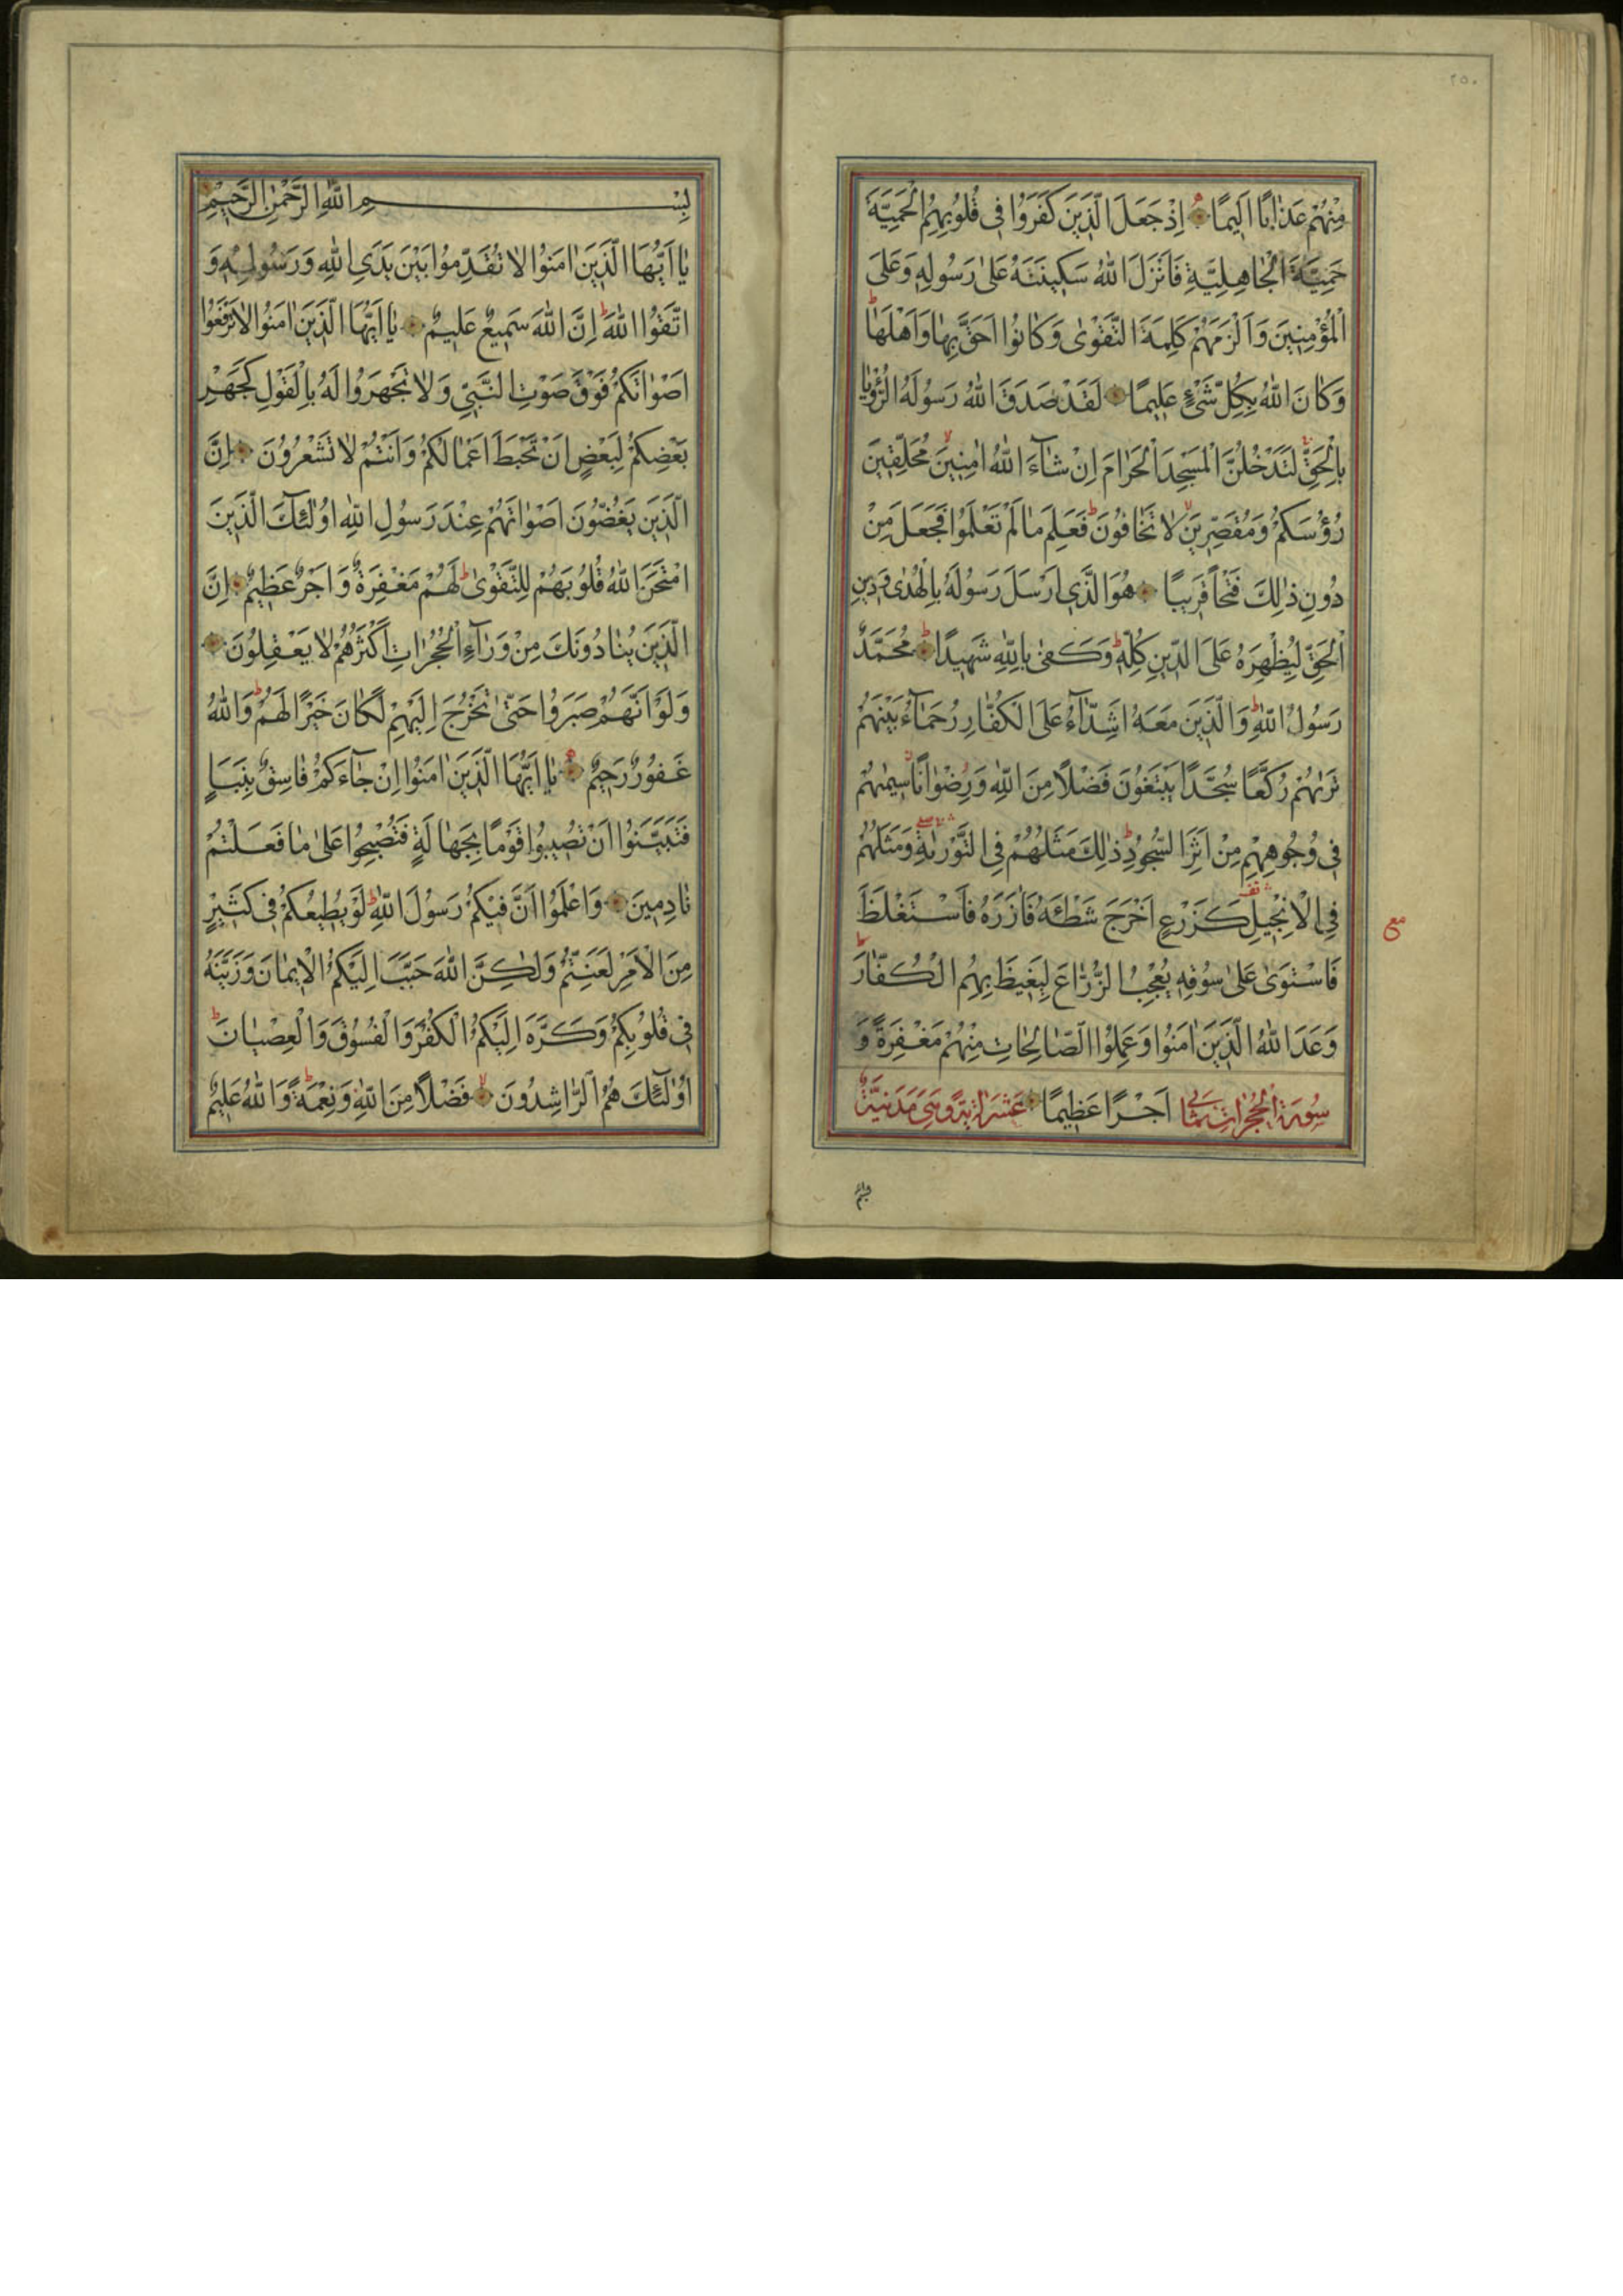 ٢٥٠
مِنْهُمْ عَذَابًا اَلِيمًا اِذْ جَعَلَ الَّذِينَ كَفَرُوا فِى قُلُوبِهِمُ الْحَمِيَّةَ
حَمِيَّةَ الْجَاهِلِيَّةِ فَاَنْزَلَ اللّٰهُ سَكِينَتَهُ عَلٰى رَسُولِهِ وَعَلَى
الْمُؤْمِنِينَ وَاَلْزَمَهُمْ كَلِمَةَ التَّقْوٰى وَكَانُوا اَحَقَّ بِهَا وَاَهْلَهَا ط
وَكَانَ اللّٰهُ بِكُلِّ شَىْءٍ عَلِيمًا لَقَدْ صَدَقَ اللّٰهُ رَسُولَهُ الرُّؤْيَا
بِالْحَقِّ لَتَدْخُلُنَّ الْمَسْجِدَ الْحَرَامَ اِنْ شَآءَ اللّٰهُ اٰمِنِينَ لا مُحَلِّقِينَ
رُؤُسَكُمْ وَمُقَصِّرِينَ لا لَا تَخَافُونَ ط فَعَلِمَ مَا لَمْ تَعْلَمُوا فَجَعَلَ مِنْ
دُونِ ذٰلِكَ فَتْحًا قَرِيبًا هُوَ الَّذِى اَرْسَلَ رَسُولَهُ بِالْهُدٰى وَدِينِ
الْحَقِّ لِيُظْهِرَهُ عَلَى الدِّينِ كُلِّهِ ط وَكَفٰى بِاللّٰهِ شَهِيدًا ط مُحَمَّدٌ
رَسُولُ اللّٰهِ ط وَالَّذِينَ مَعَهُ اَشِدَّآءُ عَلَى الْكُفَّارِ رُحَمَآءُ بَيْنَهُمْ
تَرٰيهُمْ رُكَّعًا سُجَّدًا يَبْتَغُونَ فَضْلًا مِنَ اللّٰهِ وَرِضْوَانًا سِيمٰيهُمْ
فِى وُجُوهِهِمْ مِنْ اَثَرِ السُّجُودِ ط ذٰلِكَ مَثَلُهُمْ فِى التَّوْرٰيةِ وَمَثَلُهُمْ
فِى الْاِنْجِيلِ كَزَرْعٍ اَخْرَجَ شَطْئَهُ فَاٰزَرَهُ فَاسْتَغْلَظَ
مع
فَاسْتَوٰى عَلٰى سُوقِهِ يُعْجِبُ الزُّرَّاعَ لِيَغِيظَ بِهِمُ الْكُفَّارَ ط
وَعَدَ اللّٰهُ الَّذِينَ اٰمَنُوا وَعَمِلُوا الصَّالِحَاتِ مِنْهُمْ مَغْفِرَةً وَ
سُورَةُ الْحُجُرَاتِ ثَمَانِى اَجْرًا عَظِيمًا عَشَرَ اٰيَةً وَهِىَ مَدَنِيَّةٌ
بسم
بِسْمِ اللّٰهِ الرَّحْمٰنِ الرَّحِيمِ
يَا اَيُّهَا الَّذِينَ اٰمَنُوا لَا تُقَدِّمُوا بَيْنَ يَدَىِ اللّٰهِ وَرَسُولِهِ وَ
اتَّقُوا اللّٰهَ ط اِنَّ اللّٰهَ سَمِيعٌ عَلِيمٌ يَا اَيُّهَا الَّذِينَ اٰمَنُوا لَا تَرْفَعُوا
اَصْوَاتَكُمْ فَوْقَ صَوْتِ النَّبِىِّ وَلَا تَجْهَرُوا لَهُ بِالْقَوْلِ كَجَهْرِ
بَعْضِكُمْ لِبَعْضٍ اَنْ تَحْبَطَ اَعْمَالُكُمْ وَاَنْتُمْ لَا تَشْعُرُونَ اِنَّ
الَّذِينَ يَغُضُّونَ اَصْوَاتَهُمْ عِنْدَ رَسُولِ اللّٰهِ اُولٰئِكَ الَّذِينَ
امْتَحَنَ اللّٰهُ قُلُوبَهُمْ لِلتَّقْوٰى ط لَهُمْ مَغْفِرَةٌ وَاَجْرٌ عَظِيمٌ اِنَّ
الَّذِينَ يُنَادُونَكَ مِنْ وَرَآءِ الْحُجُرَاتِ اَكْثَرُهُمْ لَا يَعْقِلُونَ
وَلَوْ اَنَّهُمْ صَبَرُوا حَتّٰى تَخْرُجَ اِلَيْهِمْ لَكَانَ خَيْرًا لَهُمْ ط وَاللّٰهُ
غَفُورٌ رَحِيمٌ يَا اَيُّهَا الَّذِينَ اٰمَنُوا اِنْ جَآءَكُمْ فَاسِقٌ بِنَبَاٍ
فَتَبَيَّنُوا اَنْ تُصِيبُوا قَوْمًا بِجَهَالَةٍ فَتُصْبِحُوا عَلٰى مَا فَعَلْتُمْ
نَادِمِينَ وَاعْلَمُوا اَنَّ فِيكُمْ رَسُولَ اللّٰهِ ط لَوْ يُطِيعُكُمْ فِى كَثِيرٍ
مِنَ الْاَمْرِ لَعَنِتُّمْ وَلٰكِنَّ اللّٰهَ حَبَّبَ اِلَيْكُمُ الْاِيمَانَ وَزَيَّنَهُ
فِى قُلُوبِكُمْ وَكَرَّهَ اِلَيْكُمُ الْكُفْرَ وَالْفُسُوقَ وَالْعِصْيَانَ ط
اُولٰئِكَ هُمُ الرَّاشِدُونَ لا فَضْلًا مِنَ اللّٰهِ وَنِعْمَةً ط وَاللّٰهُ عَلِيمٌ